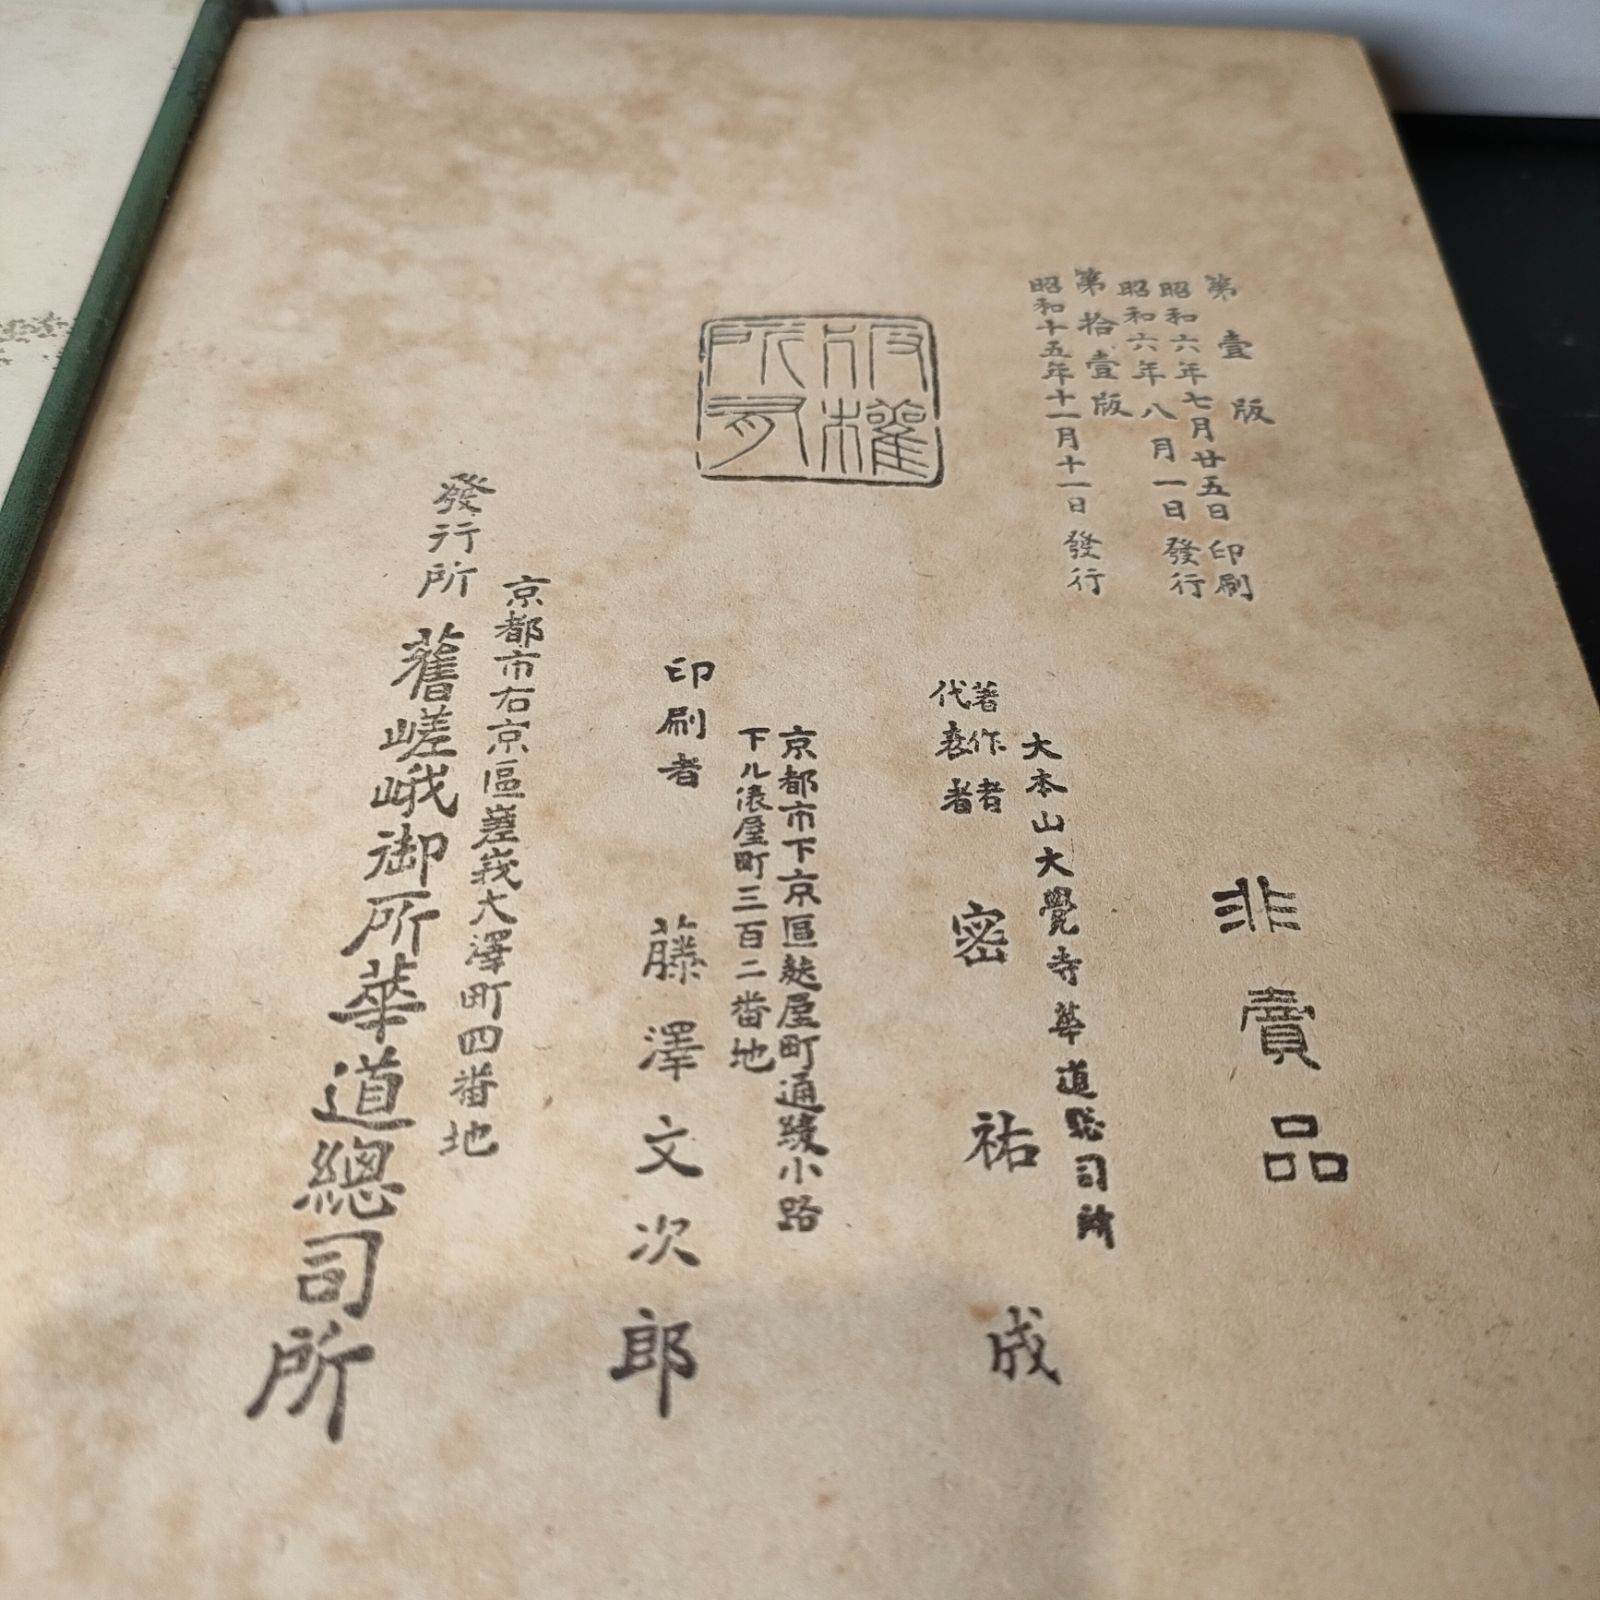 第壹版
昭和六年七月廿五日印刷
昭和六年八月一日發行
第拾壹版
昭和十五年十一月十一日發行
版權所有
非賣品
大本山大覺寺華道總司所
著作者
代表者
密祐成
京都市下京區麸屋町通綾小路
下ル俵屋町三百二番地
印刷者
藤澤文次郎
京都市右京區嵳峩大澤町四番地
發行所
舊嵯峨御所華道總司所